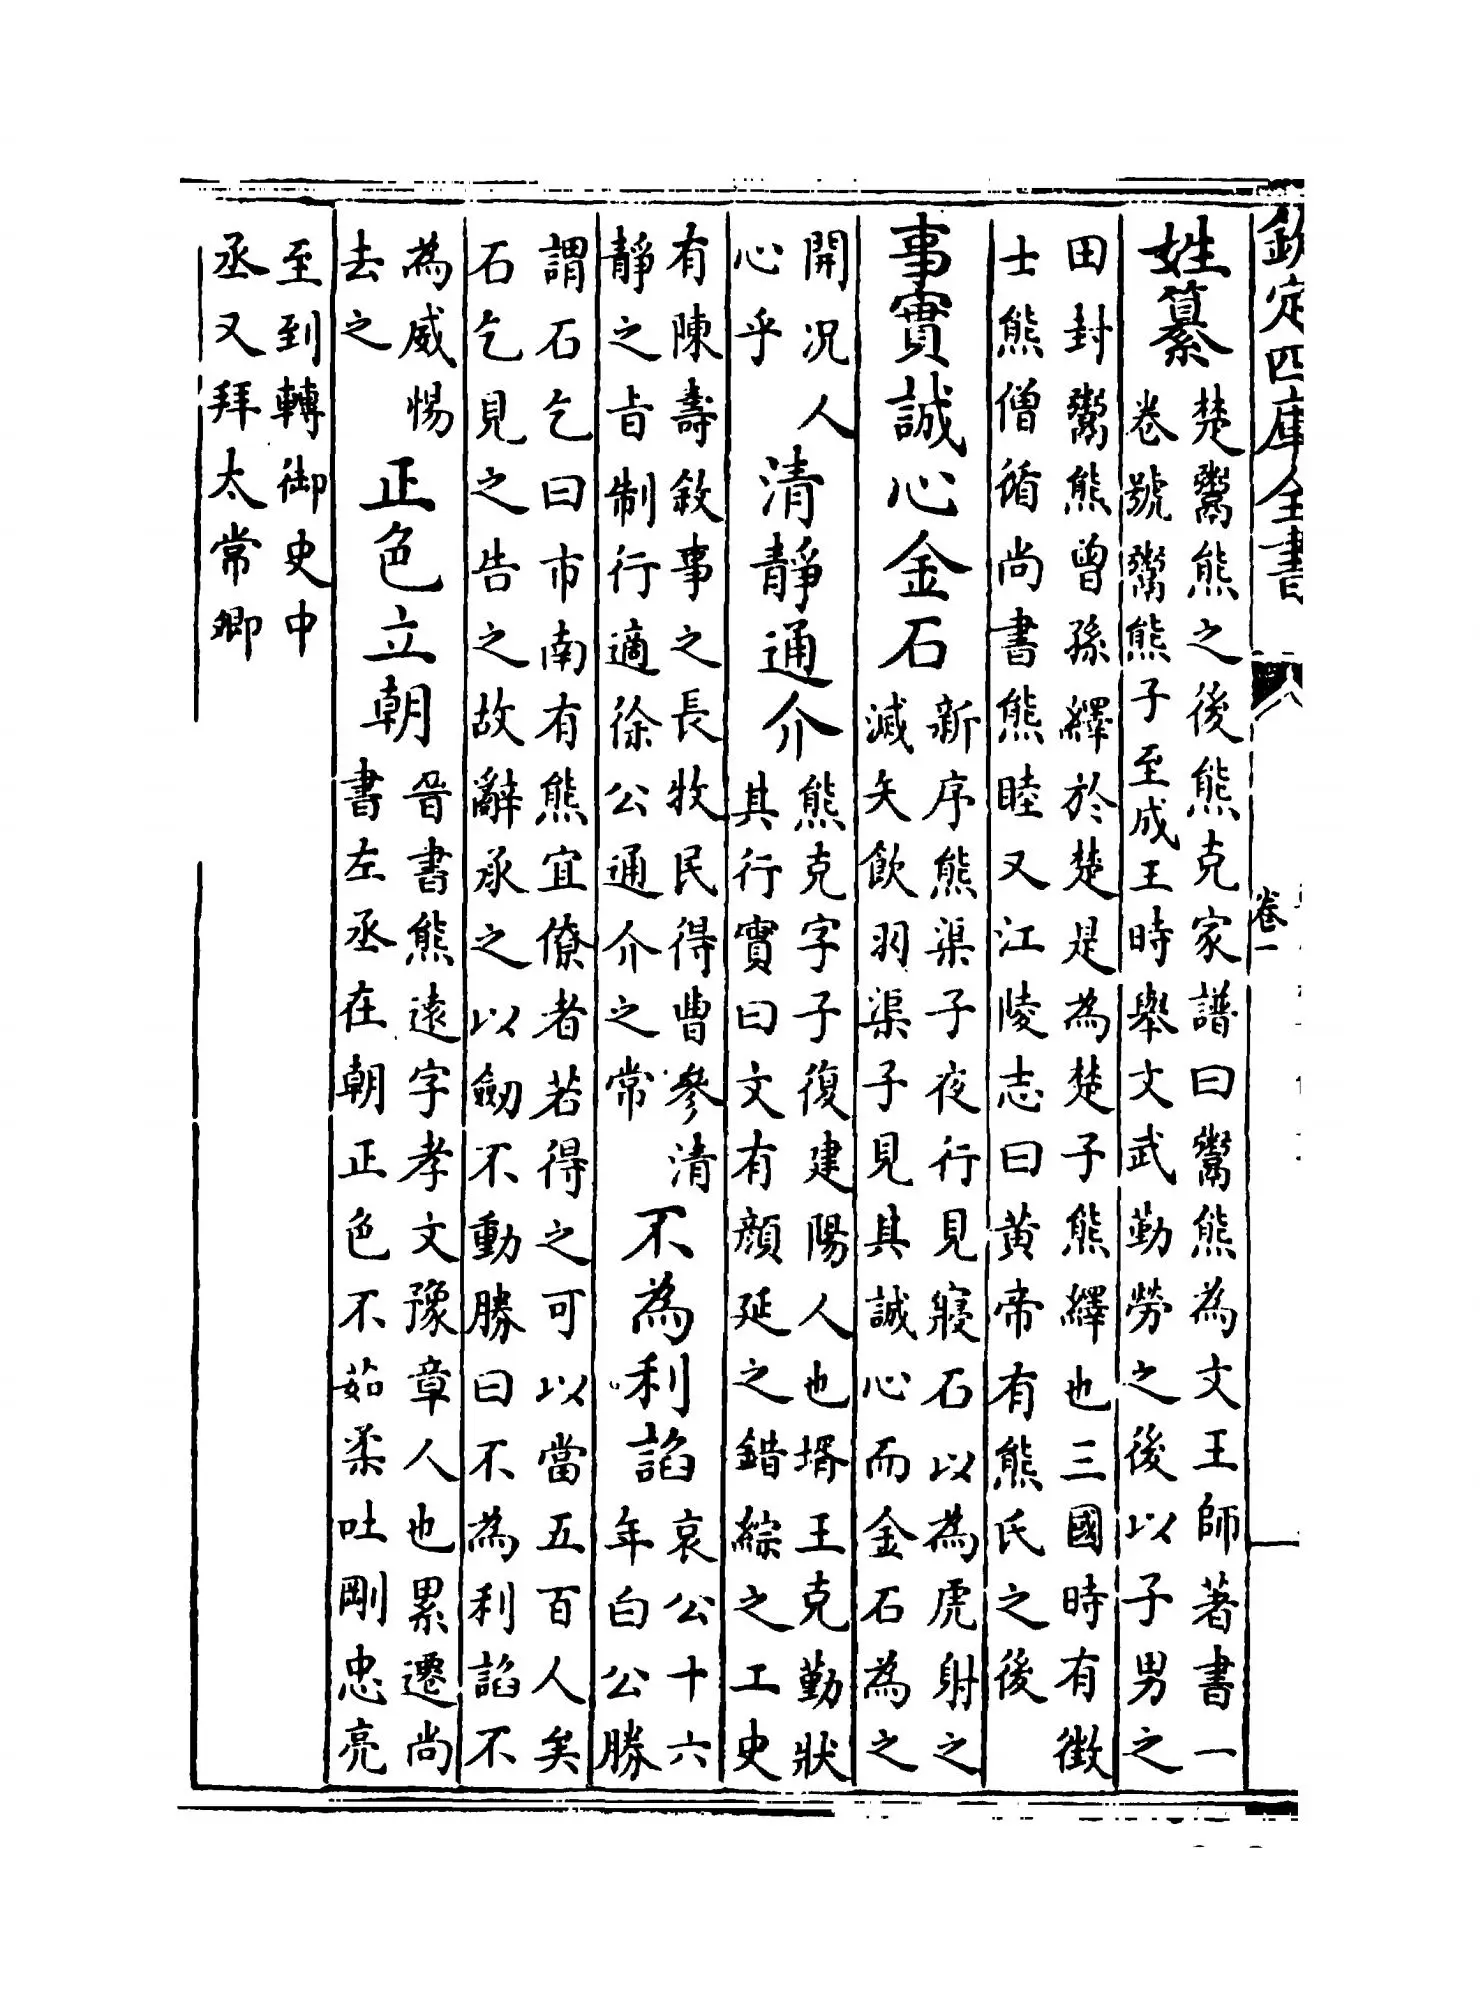 欽定四庫全書
卷一
姓纂
楚鬻熊之後熊克家譜曰鬻熊為文王師著書一
卷號鬻熊子至成王時舉文武勤勞之後以子男之
田封鬻熊曾孫繹於楚是為楚子熊繹也三國時有徵
士熊僧循尚書熊睦又江陵志曰黃帝有熊氏之後
事實誠心金石
新序熊渠子夜行見寢石以為虎射之
滅矢飲羽渠子見其誠心而金石為之
開況人
心乎
清靜通介
熊克字子復建陽人也壻王克勤狀
其行實曰文有顔延之錯綜之工史
有陳壽敘事之長牧民得曹參清
靜之旨制行適徐公通介之常
不為利謟
哀公十六
年白公勝
謂石乞曰市南有熊宜僚者若得之可以當五百人矣
石乞見之告之故辭承之以劒不動勝曰不為利謟不
為威惕
去之
正色立朝
晉書熊遠字孝文豫章人也累遷尚
書左丞在朝正色不茹柔吐剛忠亮
至到轉御史中
丞又拜太常卿